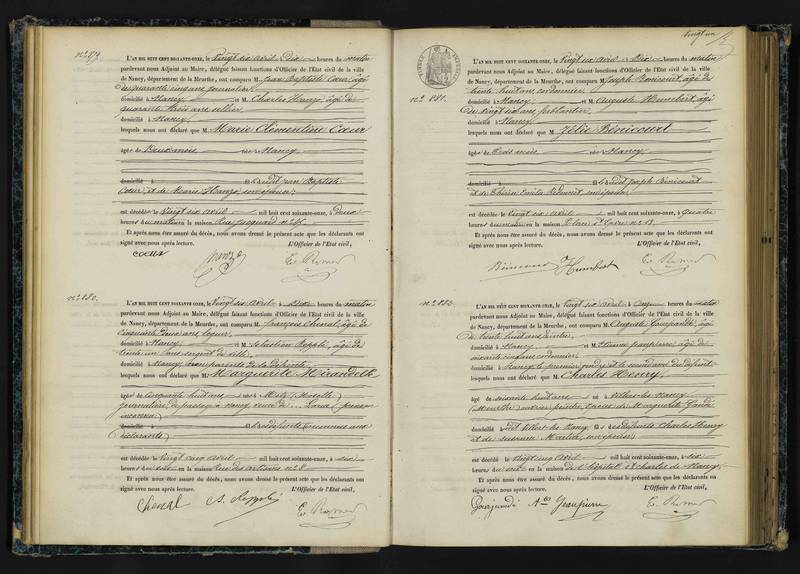 n° 879.
L'AN MIL HUIT CENT SOIXANTE-ONZE, le Vingt six avril à Dix heures du matin
pardevant nous Adjoint au Maire, délégué faisant fonctions d'Officier de l'État civil de la ville
de Nancy, département de la Meurthe, ont comparu M. Jean Baptiste Cœur âgé
de quarante cinq ans journalier
domicilié à Nancy et M. Charles Hanzo, âgé de
quarante trois ans sellier
domicilié à Nancy
lesquels nous ont déclaré que M. Marie Clémentine Cœur
âgée de Deux mois née à Nancy
domicilié à fille dudit Jean Baptiste
Cœur, et de Marie Hanzo son épouse
est décédée le Vingt six avril mil huit cent soixante-onze, à deux
heures du matin en la maison n° 45
Et après nous être assuré du décès, nous avons dressé le présent acte que les déclarants ont
signé avec nous après lecture. L'Officier de l'État civil,
cœur
n° 880.
L'AN MIL HUIT CENT SOIXANTE-ONZE, le Vingt six avril à Dix heures du matin
pardevant nous Adjoint au Maire, délégué faisant fonctions d'Officier de l'État civil de la ville
de Nancy, département de la Meurthe, ont comparu M. François Cheval, âgé de
cinquante deux ans
domicilié à Nancy et M. Sébastien Repple, âgé de
trente un ans sergent de ville
domicilié à Nancy
lesquels nous ont déclaré que M. Marguerite Mirandelle
âgée de cinquante huit ans née à Metz (Moselle)
journalière de passage à Nancy veuve de Louis (prénom
inconnu)
domicilié à fille de défunts (inconnus aux
déclarants)
est décédée le Vingt cinq avril mil huit cent soixante-onze, à six
heures du soir en la maison rue des artisans n° 8
Et après nous être assuré du décès, nous avons dressé le présent acte que les déclarants ont
signé avec nous après lecture. L'Officier de l'État civil,
Cheval S. Repple
Vingt un
n° 881.
L'AN MIL HUIT CENT SOIXANTE-ONZE, le Vingt six avril à Dix heures du matin
pardevant nous Adjoint au Maire, délégué faisant fonctions d'Officier de l'État civil de la ville
de Nancy, département de la Meurthe, ont comparu M. Joseph Bénicourt, âgé de
trente huit ans cordonnier
domicilié à Nancy et M. Auguste Humbert, âgé
de vingt six ans ferblantier
domicilié à Nancy
lesquels nous ont déclaré que M. Zélie Bénicourt
âgée de trois mois née à Nancy
domicilié à fille dudit Joseph Bénicourt
et de son épouse
est décédée le Vingt six avril mil huit cent soixante-onze, à quatre
heures du matin en la maison
Et après nous être assuré du décès, nous avons dressé le présent acte que les déclarants ont
signé avec nous après lecture. L'Officier de l'État civil,
Humbert
n° 882.
L'AN MIL HUIT CENT SOIXANTE-ONZE, le Vingt six avril à onze heures du matin
pardevant nous Adjoint au Maire, délégué faisant fonctions d'Officier de l'État civil de la ville
de Nancy, département de la Meurthe, ont comparu M. Auguste âgé
de trente huit ans
domicilié à Nancy et M. Etienne âgé de
soixante cinq ans cordonnier
domicilié à Nancy le premier gendre et le second ami du défunt
lesquels nous ont déclaré que M. Charles Henry
âgé de soixante huit ans né à Villers-les-Nancy
(Meurthe) ouvrier peintre, époux de Marguerite
domicilié à dit Villers-les-Nancy fils de défunts Charles Henry
et de Susanne son épouse
est décédé le Vingt cinq avril mil huit cent soixante-onze, à six
heures du soir en la maison de l'hôpital St Charles de Nancy
Et après nous être assuré du décès, nous avons dressé le présent acte que les déclarants ont
signé avec nous après lecture. L'Officier de l'État civil,